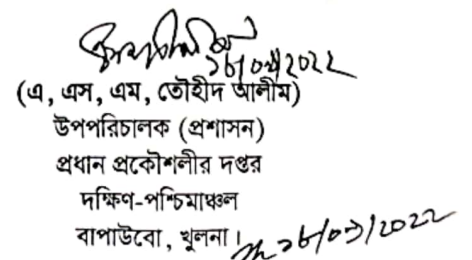 ১৬/০৩/2022
(এ, এস, এম, তৌহীদ আলীম)
উপপরিচালক (প্রশাসন)
প্রধান প্রকৌশলীর দপ্তর
দক্ষিণ-পশ্চিমাঞ্চল
বাপাউবো, খুলনা।
১৬/০৩/2022